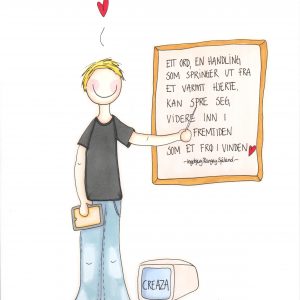 ETT ORD, EN HANDLING,
SOM SPRINGER UT FRA
ET VARMT HJERTE,
KAN SPRE SEG,
VIDERE INN I
FREMTIDEN
SOM ET FRØ I VINDEN
CREAZA